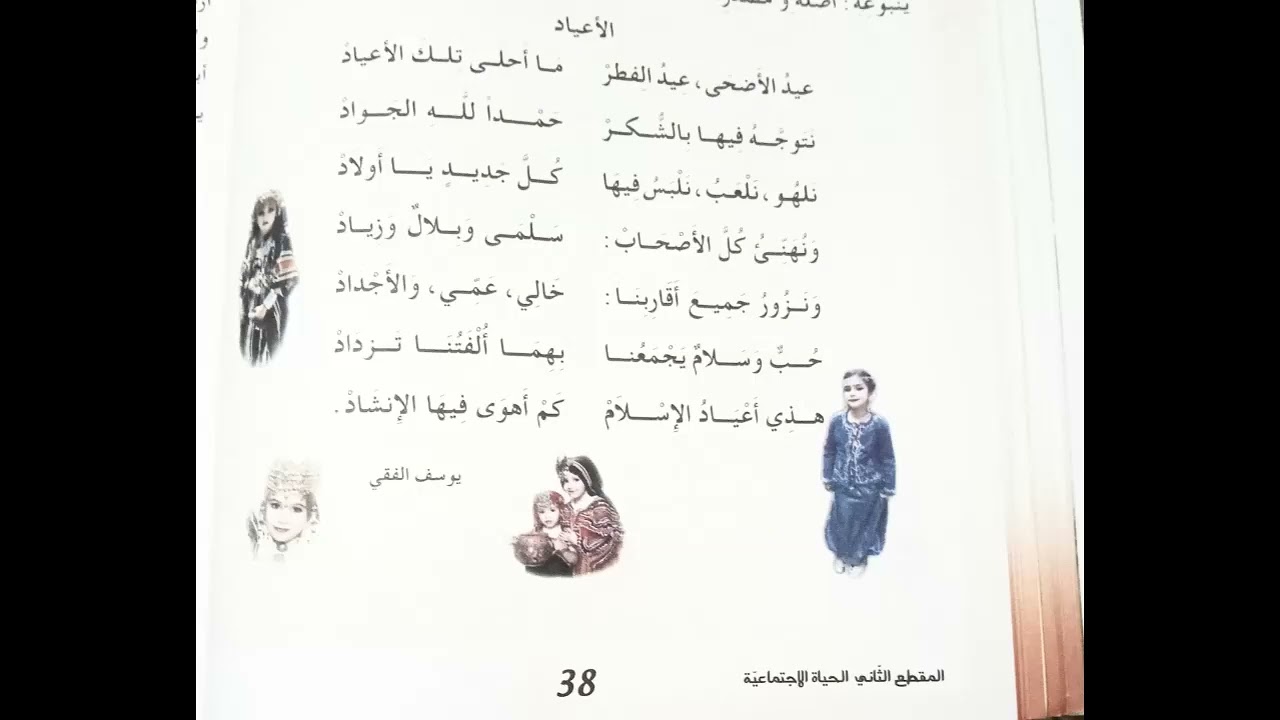 ينبوعه : أصله و مصدر
الأعياد
عيدُ الأَضحَى ، عِيدُ الفِطرْ مَا أحلى تلك الأعيادْ
نَتَوجَّهُ فِيها بالشُّكرْ حَمْداً للَّهِ الجَوادْ
نلهُو ، نَلْعَبُ ، نَلْبَسُ فِيهَا كُلَّ جَدِيدٍ يا أولادْ
وَنُهَنِّئُ كُلَّ الأَصْحَابْ : سَلْمَى وَبلالٌ وَزيادْ
وَنَزُورُ جَمِيعَ أَقَارِبنَا : خَالِي، عَمِّي، وَالأَجْدادْ
حُبٌّ وَسَلامٌ يَجْمَعُنا بِهِمَا أُلْفَتُنَا تَزدَادْ
هذِي أَعْيَادُ الإِسْلَامْ كَمْ أَهوَى فِيهَا الإِنشَادْ .
يوسف الفقي
38
المقطع الثّاني الحياة الإجتماعيّة